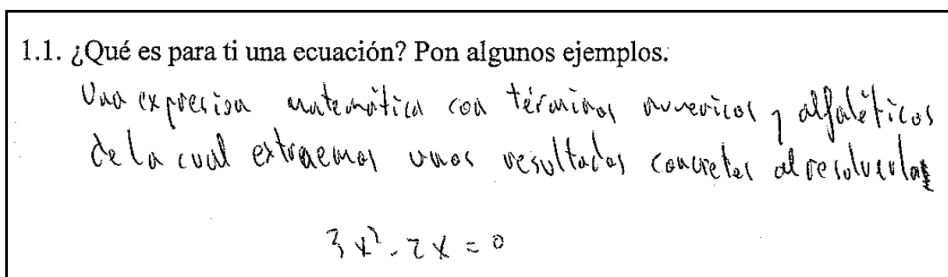 1.1. ¿Qué es para ti una ecuación? Pon algunos ejemplos.
Una expresion matemática con términos numericos y alfaléticos
de la cual extraemos unos resultados concretos al resolverlas
3x² - 2x = 0